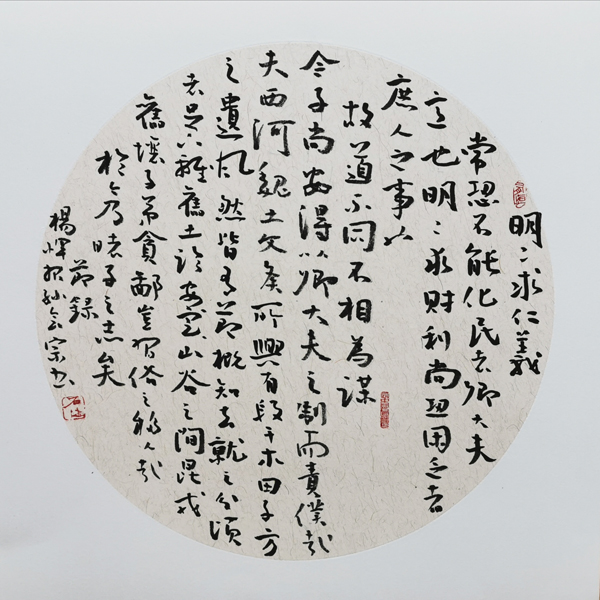 明〻求仁義
常恐不能化民者卿大夫
意也明〻求財利尚恐困乏者
庶人之事也
故道不同不相為謀
今子尚安得以卿大夫之制而責僕哉
夫西河魏土文侯所興有段干木田子方
之遺風然皆有節概知去就之分頃
者足下離舊土臨安定山谷之間昆戎
舊壤子弟貪鄙豈習俗之移人哉
於今乃睹子之志矣
節錄
楊惲報孫會宗書